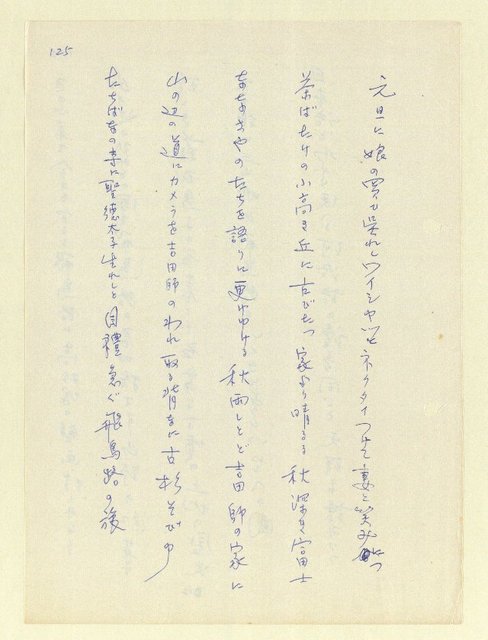 125
元旦に娘の買ひ呉れしワイシャツとネクタイつけて妻と笑み
茶ばたけの小高き丘に古びたつ家より晴るる秋深き富士
語りに更けゆける秋雨しとど吉田師の家に
山の辺の道にカメラを吉田師のわれ取る背なに古杉そびゆ
たちばなの寺に聖徳太子生れしと目禮急ぐ飛鳥路の旅